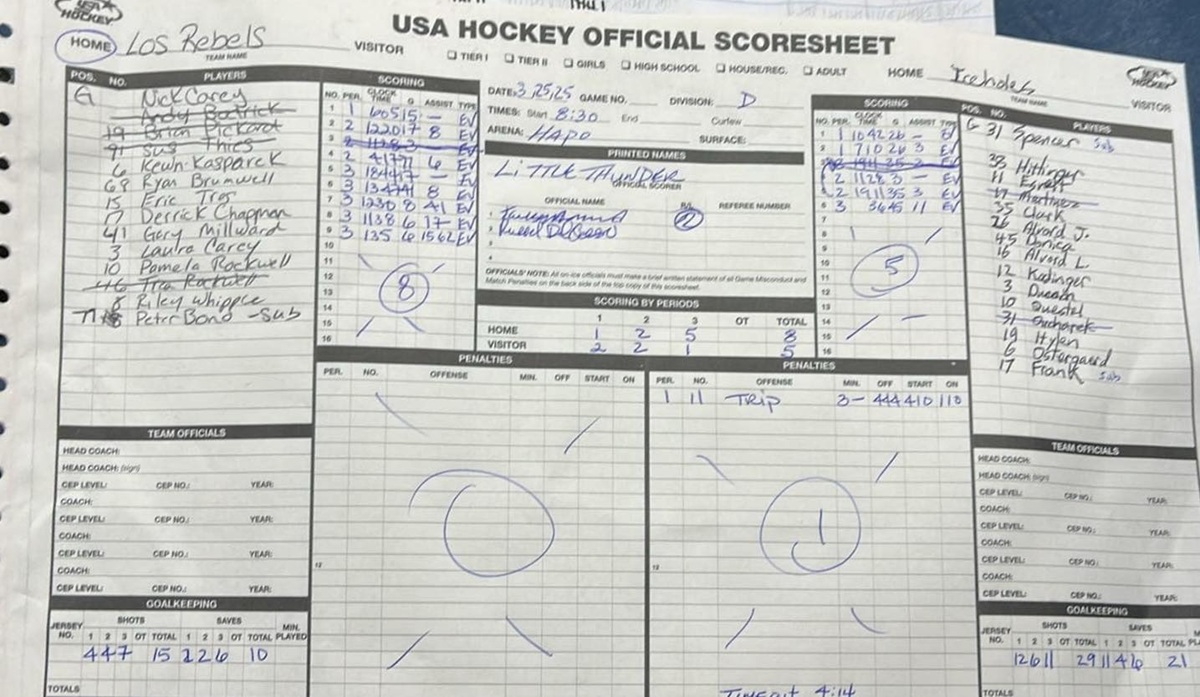 USA HOCKEY OFFICIAL SCORESHEET
USA HOCKEY
HOME Los Rebels VISITOR
TEAM NAME
☐ TIER I ☐ TIER II ☐ GIRLS ☐ HIGH SCHOOL ☐ HOUSE/REC. ☐ ADULT
HOME Iceholes VISITOR
TEAM NAME
POS. NO. PLAYERS
G Nick Carey
Andy Bostrick
19 Brian Pickard
91 Sus Thics
6 Kevin Kasparek
69 Ryan Brumwell
15 Eric
17 Derrick Chapman
41 Gary Millward
3 Laura Carey
10 Pamela Rockwell
46 Rockwell
8 Riley Whipple
77 Peter Bond - Sub
SCORING
NO. PER. CLOCK TIME G ASSIST TYPE
1 1 605 15 - EV
2 2 1220 17 8 EV
3
4 2 417 71 6 EV
5 3
6 3 1347 41 8 EV
7 3 1230 8 41 EV
8 3 1138 6 17 EV
9 3 135 6 15 62 EV
10
11
12
13
14
15
16
8
DATE: 3,25,25 GAME NO. DIVISION: D
TIMES: Start 8:30 End Curfew
ARENA: HAPO SURFACE:
PRINTED NAMES
LITTLE THUNDER
OFFICIAL SCORER
OFFICIAL NAME R/L REFEREE NUMBER
1
2
3
4
OFFICIALS' NOTE: All on-ice officials must make a brief written statement of all Game Misconduct and
Match Penalties on the back side of the top copy of this scoresheet.
SCORING BY PERIODS
1 2 3 OT TOTAL
HOME 1 2 5 8
VISITOR 2 2 1 5
SCORING
NO. PER. CLOCK TIME G ASSIST TYPE
1 1 1092 26 - EV
2 1 710 26 3 EV
2 1128 3 - EV
2 1911 35 3 EV
6 3 36 45 11 EV
7
8
9
10
11
12
13
14
15
16
5
POS. NO. PLAYERS
G 31 Spencer Sub
38 Hittinger
11
17 Martinez
35 Clark
26 Alvord J.
45 Danica
16 Alvord L
12 Kadinger
3
10 Questel
31 Sucharek
19 Hylen
6 Ostergaard
17 Frank Sub
PENALTIES
PER. NO. OFFENSE MIN. OFF START ON
12
PENALTIES
PER. NO. OFFENSE MIN. OFF START ON
1 11 TRIP 3- 444 410 110
1
12
TIMEOUT 4:14
TEAM OFFICIALS
HEAD COACH:
HEAD COACH: (sign)
CEP LEVEL: CEP NO.: YEAR:
COACH:
CEP LEVEL: CEP NO.: YEAR:
COACH:
CEP LEVEL: CEP NO.: YEAR:
COACH:
CEP LEVEL: CEP NO.: YEAR:
GOALKEEPING
JERSEY NO. SHOTS 1 2 3 OT TOTAL SAVES 1 2 3 OT TOTAL MIN. PLAYED
4 4 7 15 2 2 6 10
TOTALS
TEAM OFFICIALS
HEAD COACH:
HEAD COACH: (sign)
CEP LEVEL: CEP NO.: YEAR:
COACH:
CEP LEVEL: CEP NO.: YEAR:
COACH:
CEP LEVEL: CEP NO.: YEAR:
COACH:
CEP LEVEL: CEP NO.: YEAR:
GOALKEEPING
JERSEY NO. SHOTS 1 2 3 OT TOTAL SAVES 1 2 3 OT TOTAL
12 6 11 29 11 4 6 21
TOTALS